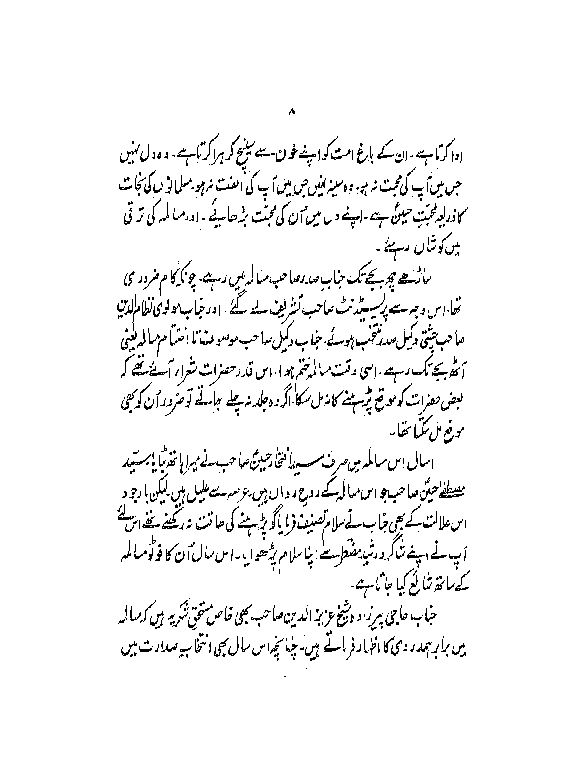 ۸
ادا کرتا ہے۔ ان کے باغ امت کو اپنے خون سے سینچ کر ہرا کرتا ہے۔ وہ دل نہیں
جس میں آپ کی محبت نہ ہو، وہ سینہ نہیں جس میں آپ کی الفت نہ ہو۔ مسلمانوں کی نجات
کا ذریعہ محبت حسینؑ ہے۔ اپنے دل میں اُن کی محبت بڑھائیے۔ اور مسالمہ کی ترقی
میں کوشاں رہیئے۔
ساڑھے چھ بجے تک جناب صدر صاحب مسالمہ میں رہے۔ چونکہ کام ضروری
تھا، اس وجہ سے پریسیڈنٹ صاحب تشریف لے گئے۔ اور جناب مولوی نظام الدین
صاحب چشتی وکیل صدر منتخب ہوئے۔ جناب وکیل صاحب موصوف تا اختتام مسالمہ یعنی
آٹھ بجے تک رہے۔ اسی وقت مسالمہ ختم ہوا، اس قدر حضرات شعراء آئے تھے کہ
بعض حضرات کو موقع پڑھنے کا نہ مل سکا۔ اگر وہ جلد نہ چلے جاتے تو ضرور اُن کو بھی
موقع مل سکتا تھا۔
امسال اس مسالمہ میں صرف سید افتخار حسین صاحب نے میرا ہاتھ بٹایا۔ سید
مصطفےٰ حسین صاحب جو اس مسالمہ کے روح رواں ہیں، عرصہ سے علیل ہیں۔ لیکن باوجود
اس علالت کے بھی جناب نے سلام تصنیف فرمایا گو پڑھنے کی طاقت نہ رکھتے تھے اس لئے
آپ نے اپنے شاگرد رشید مضطر سے اپنا سلام پڑھوایا۔ اس سال اُن کا فوٹو مسالمہ
کے ساتھ شائع کیا جاتا ہے۔
جناب حاجی پیرزادہ شیخ عزیز الدین صاحب بھی خاص مستحق شکریہ ہیں کہ مسالمہ
میں برابر ہمدردی کا اظہار فرماتے ہیں۔ چنانچہ اس سال بھی انتخاب صدارت میں